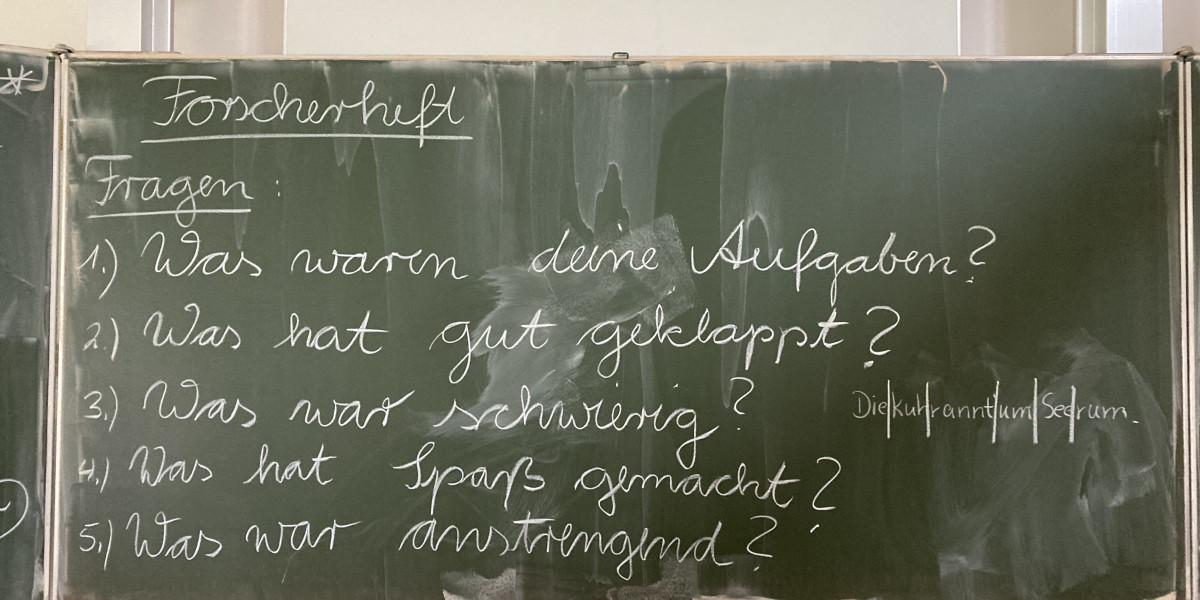 Forscherheft
Fragen:
1.) Was waren deine Aufgaben?
2.) Was hat gut geklappt?
3.) Was war schwierig?
Die|kuh|rannt|um|See|rum.
4.) Was hat Spaß gemacht?
5.) Was war anstrengend?